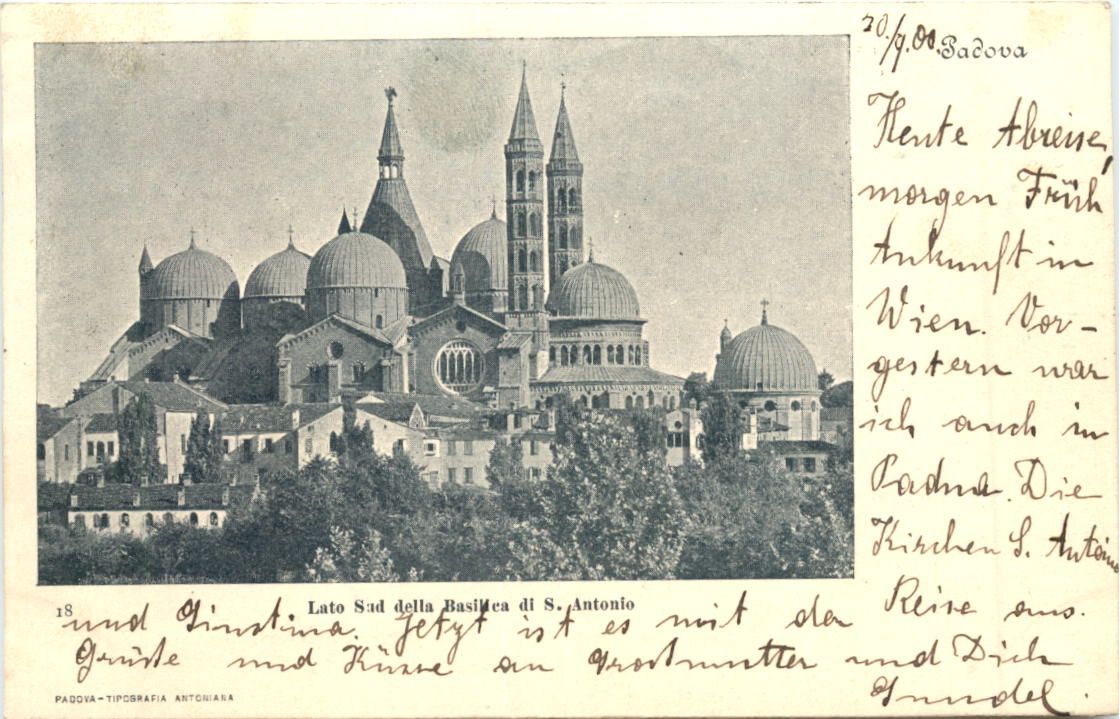 20./9.00.
Padova
Heute Abreise,
morgen Früh
Ankunft in
Wien. Vor-
gestern war
ich auch in
Padua. Die
Kirchen S. Antonio
18
Lato Sud della Basilica di S. Antonio
und Giustina. Jetzt ist es mit der Reise aus.
Grüsse und Küsse an Grossmutter und Dich
Gundel.
PADOVA-TIPOGRAFIA ANTONIANA